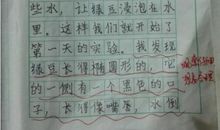 些水，让绿豆浸泡在水
里。这样我们就开始了
第一天的实验。我发现
绿豆长得椭圆形的，它
的一侧有一个黑色的口
子，长得像嘴唇，水倒